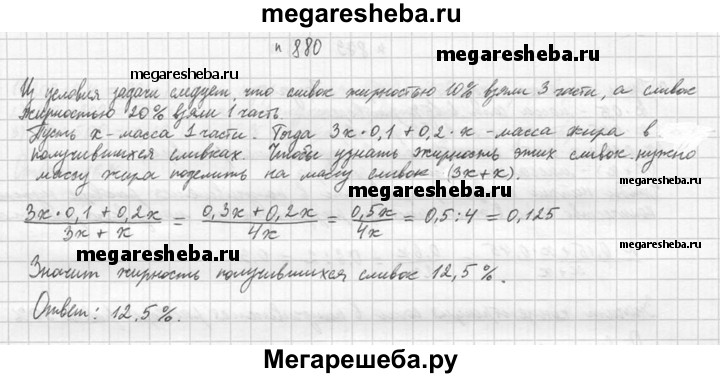 megaresheba.ru
n 880
megaresheba.ru
Из условия задачи следует, что сливок жирностью 10% взяли 3 части, а сливок
megaresheba.ru
megaresheba.ru
жирностью 20% взяли 1 часть.
Пусть x - масса 1 части. Тогда 3x·0,1+0,2·x - масса жира в
получившихся сливках. Чтобы узнать жирность этих сливок нужно
megaresheba.ru
массу жира поделить на массу сливок (3x+x).
megaresheba.ru
3x·0,1+0,2x / 3x+x = 0,3x+0,2x / 4x = 0,5x / 4x = 0,5:4 = 0,125
megaresheba.ru
megaresheba.ru
Значит жирность получившихся сливок 12,5%.
Ответ: 12,5%.
megaresheba.ru
Мегарешеба.ру